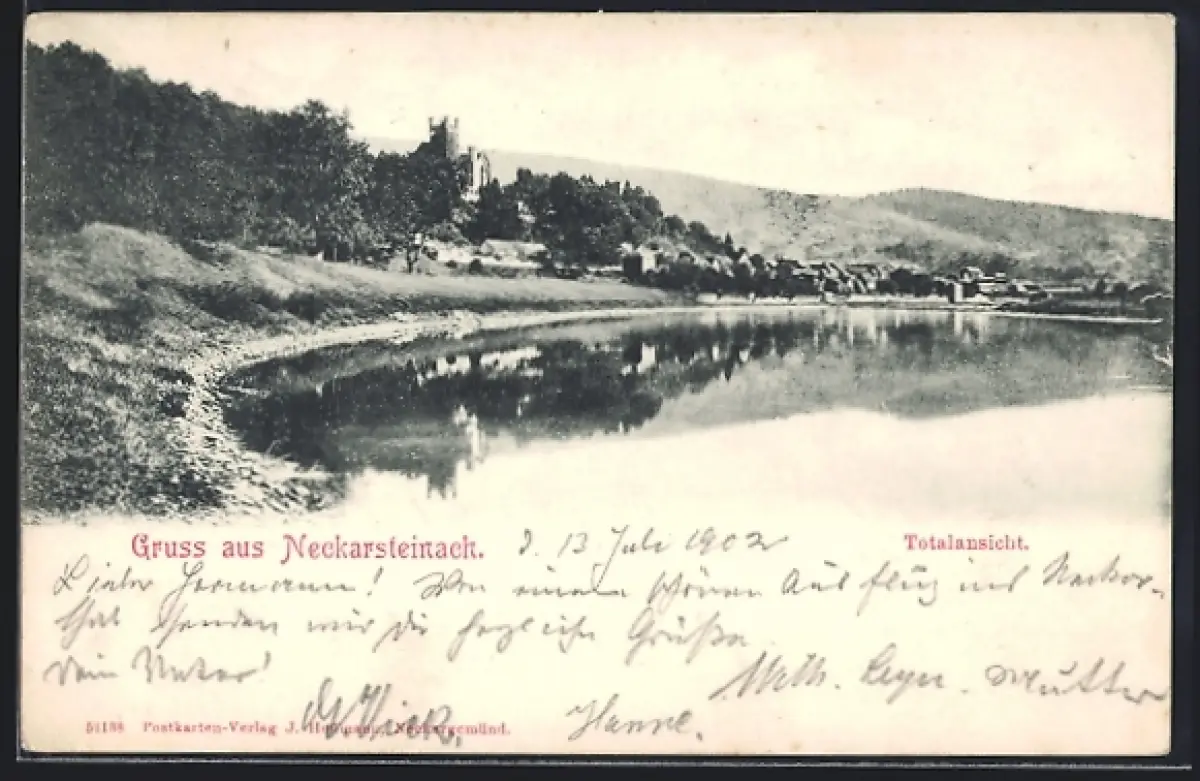 Gruss aus Neckarsteinach. d. 13. Juli 1902 Totalansicht.
Lieber Hermann! Von einem schönen Ausflug ins Neckar-
thal senden wir dir herzliche Grüße
Dein Vater! Mutter
Hanne.
51188 Postkarten-Verlag J. Neckargemünd.